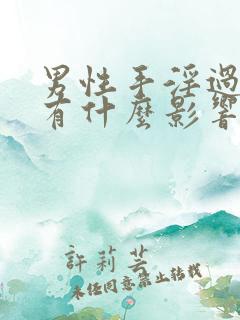 男性手淫過
有什麼影響
許莉芸
未经同意禁止转载